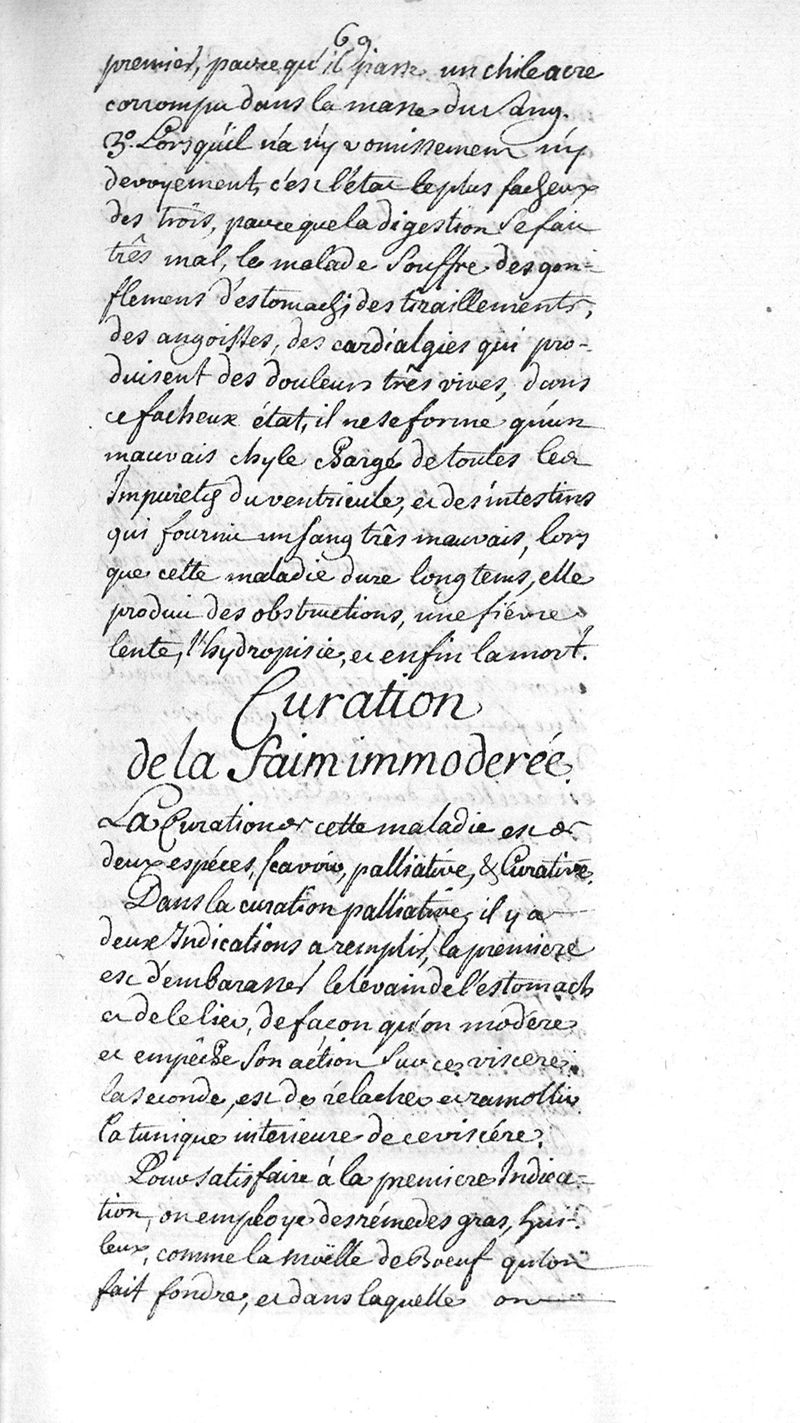 69
premier, parce qu'il passe un chile acre
corrompu dans la masse du sang.
3º. Lorsqu'il n'a n'y vomissement n'y
devoyement, c'est l'état le plus facheux
des trois, parce que la digestion se fait
três mal, le malade souffre des gon-
flemens d'estomach, des tiraillements,
des angoisses, des cardialgies qui pro-
duisent des douleurs três vives, dans
ce facheux état, il ne se forme qu'un
mauvais chyle chargé de toutes les
Impuretés du ventricule, et des intestins
qui fournit un sang três mauvais, lors
que cette maladie dure longtems, elle
produit des obstructions, une fiévre
lente, l'hydropisie, et enfin la mort.
Curation
de la faim immoderée.
La Curation de cette maladie est de
deux espéces, scavoir, palliative, & Curative.
Dans la curation palliative, il y a
deux Indications a remplir, la premiere
est d'embarasser le levain de l'estomach
et de le lier, de façon qu'on modére
et empêche son action sur ce viscere.
la seconde, est de relacher et ramollir
la tunique interieure de ce viscére.
Pour satisfaire à la premiere Indica-
tion, on employe des rémedes gras, hui-
leux, comme la moëlle de Boeuf qu'on
fait fondre, et dans laquelle on